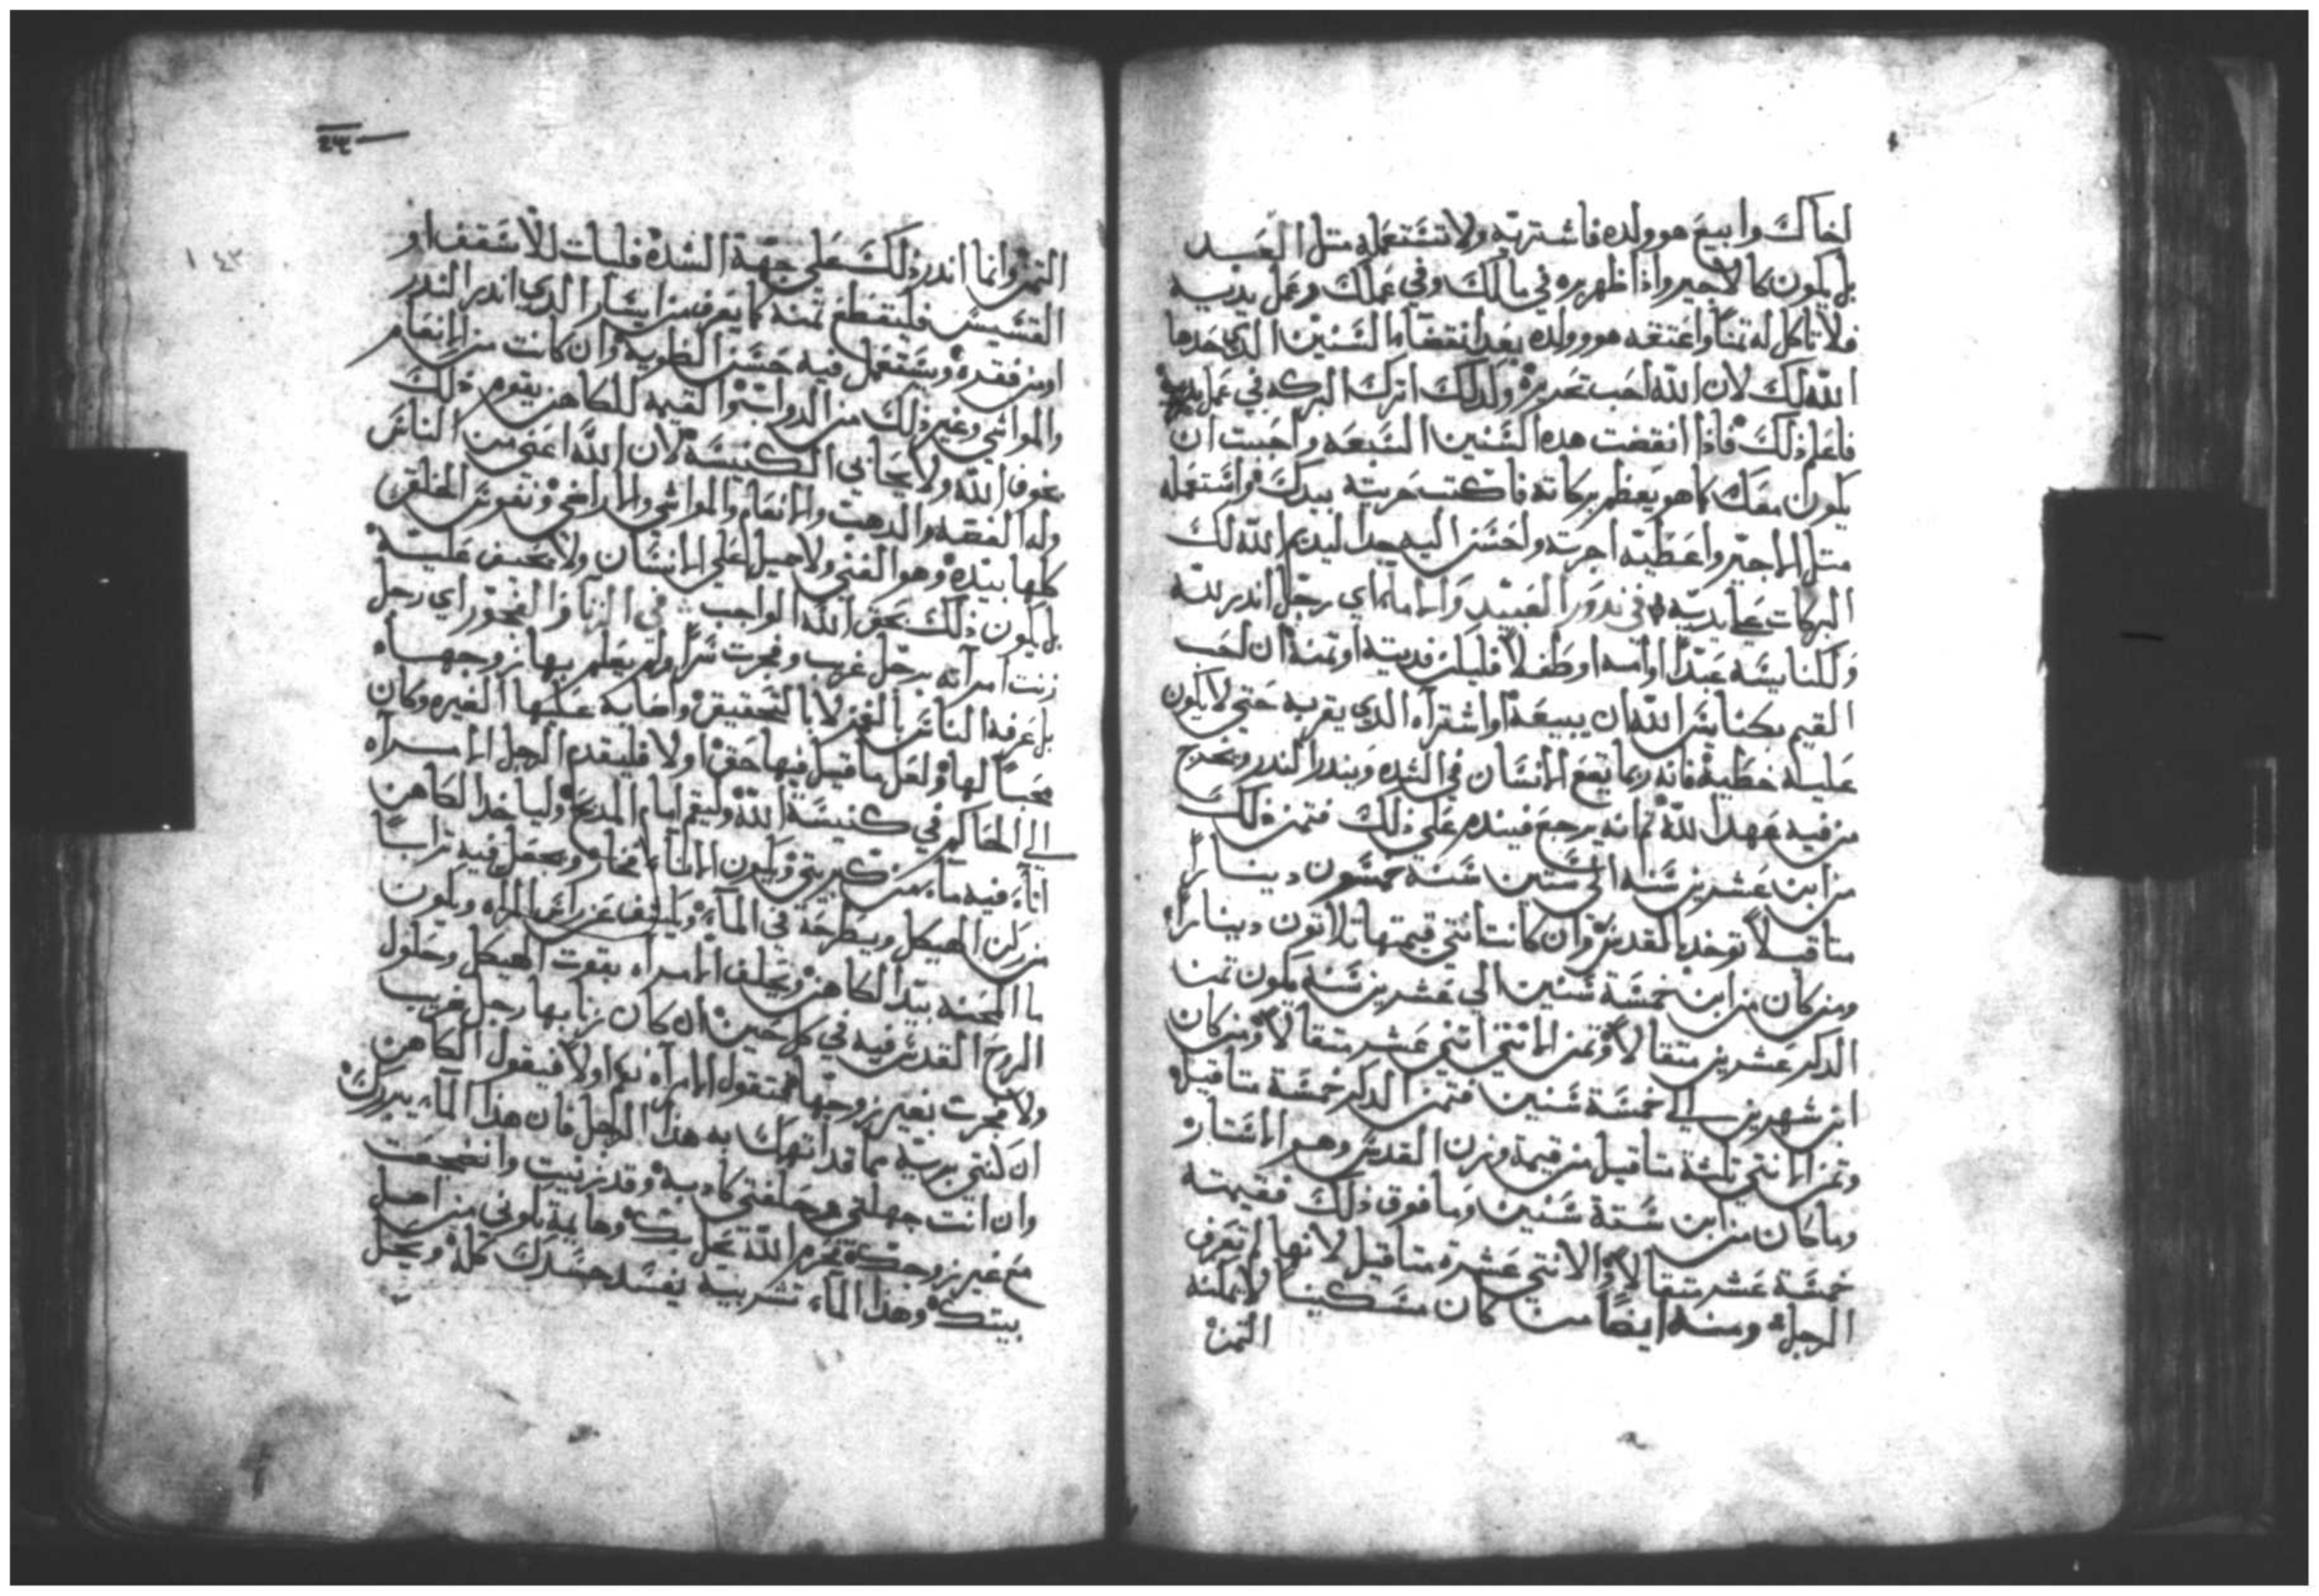 اخاك وابيع هو وولده فاشتريه ولا تستعمله متل العبد
بل يكون كالاجير واذا ظهر بره في مالك وفي عملك وعمل يديه
فلا تاكل له تمنا واعتقه هو وولده بعد انقضا ما السنين الذي حدها
الله لك لان الله احب تحريره ولدلك اترك البركه في عمل يديه
فاعلم ذلك فاذا انقضت هده السنين السبعه واحببت ان
يكون معك كما هو يعظم بركاته فاكتب حريته بيدك واستعمله
متل الاجير واعطيه اجرته واحسن اليه جدا ليديم الله لك
البركات على يديه في ندور العبيد والاماء اي رجل اندر لله
ولكنايسه عبدا او امه او طفلا فليكن فديته او تمنه ان احب
القيم بكنايس الله ان يبيعه او اشتراه الدي يقربه حتي لا يكون
عليه خطية فانه ربما يقع الانسان في الشده ويندر الندر ويخرج
من فيه عهدا لله ثم انه يرجع فيندم علي ذلك فتمن ذلك
من ابن عشرين سنه الي ستين سنة خمسون دينارا
متاقيلا توخد بالقدس وان كانت انتي قيمتها تلاتون دينارا
ومن كان من ابن خمسة سنين الي عشرين سنة يكون تمن
الدكر عشرين متقالا وتمن الانتي اتني عشر متقالا ومن كان
ابن شهرين الي خمسة سنين فتمن الدكر خمسة متاقيل
وتمن الانتي تلتة متاقيل من قيمة وزن القدس وهو الاستار
وما كان من ابن ستة سنين وما فوق ذلك فقيمته
خمسة عشر متقالا والانتي عشرة متاقيل لانها لم تعرف
الرجل ومنه ايضا من كان مسكينا لا يمكنه
التمن
التمن وانما اندر ذلك علي جهة الشده فليات للاسقف او
القسيس فليقطع تمنه كما يعرف من ايسار الدي اندر الندر
او من فقره ويستعمل فيه حسن الطويه وان كانت من الانعام
والمواشي وغير ذلك من الدواب والقيمه للكاهن يقوم ذلك
بخوف الله ولا يحابي الكنيسة لان الله اغني من الناس
وله الفضه والدهب والانعام والمواشي والاراضي ونفوس الخلق
كلها بيده وهو الغني ولا ميل علي الانسان ولا يحيف عليه
بل يكون ذلك بحق الله الواجب في الزنا والفجور اي رجل
زنت امرأته برجل غريب وفجرت سرا ولم يعلم بها زوجها
بل عرفه الناس بالغمز لا بالتحقيق واصابه عليها الغيره وكان
محبا لها ولعل ما قيل فيها حق او لا فليقدم الرجل الامرأه
الي الحاكم في كنيسة الله وليقم امام المدبح ولياخد الكاهن
اناء فيه ماء من كبريتي ويكون الاناء فخار ويجعل فيه ترابا
من ركن الهيكل ويطرحه في الماء ويكشف عن راسها الملاه ويكون
ما المحنه بيد الكاهن ويحلف الامرأه بقوت الهيكل وحلول
الروح القدس فيه في كل حين ان كان زنا بها رجل غريب
ولا فجرت بغير زوجها فتقول الامرأه نعم او لا فيقول الكاهن
ان كنتي بريه مما قد اتهمك به هدا الرجل فان هذا الماء يبررك
وان انت جهلتي وحلفتي كادبه وقد زنيت وانضجعت
مع غير زوجك فحرم الله يحل بك وخايبه تكوني من اهل
بيتك وهذا الماء تشربيه يفسد جسدك كله ويحل